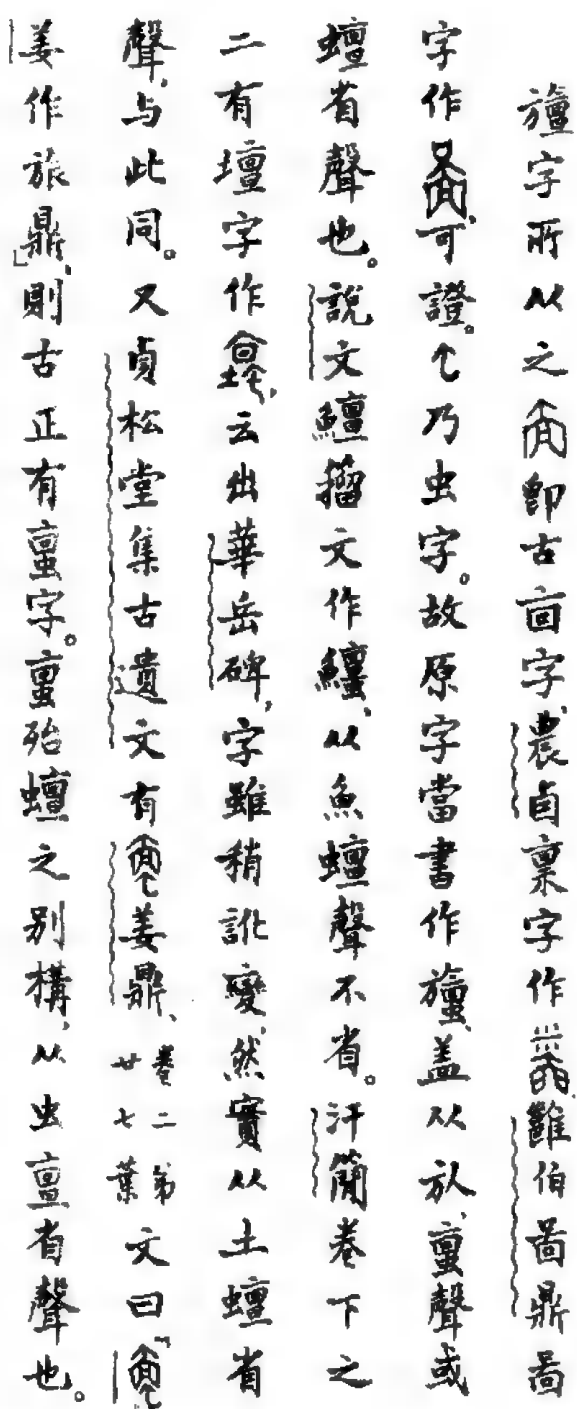 旜字所从之即古亩字,農卣稟字作,雝伯啚鼎啚
字作,可證。乃虫字。故原字當書作,蓋从㫃,䘇聲或
蟺省聲也。說文鱣籀文作䲕,从魚蟺聲不省。汗簡卷下之
二有壇字作,云出華岳碑,字雖稍訛變,然實从土蟺省
聲,与此同。又貞松堂集古遺文有姜鼎、卷二第廿七葉文曰「
姜作旅鼎」,則古正有字。殆蟺之別構,从虫亶省聲也。